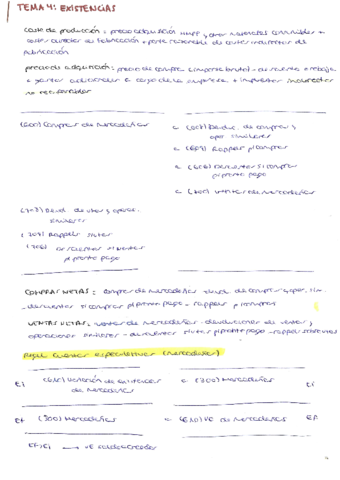 TEMA 4: EXISTENCIAS
coste de producción: precio adquisición MMPP y otras materias consumibles +
costes directos de fabricación + parte razonable de costes indirectos de
fabricación
precio de adquisición: precio de compra (importe bruto) - descuento o rebaja
+ gastos adicionales a cargo de la empresa + impuestos indirectos
no recuperables
(600) Compras de mercaderías a (608) Deduc. de compras y
oper. similares
a (609) Rappels p/compras
a (606) Descuentos s/compras
p/pronto pago
a (700) Ventas de mercaderías
(708) Devol. de ventas y operac.
similares
(709) Rappels s/ventas
(706) Descuentos s/ventas
p/pronto pago
COMPRAS NETAS: compras de mercaderías - devol. de compras y oper. sim.
- descuentos s/compras p/pronto pago - rappels p/compras
VENTAS NETAS: ventas de mercaderías - devoluciones de ventas y
operaciones similares - descuentos s/ventas p/pronto pago - rappels s/ventas
Regul. Cuentas especulativas (mercaderías)
Ei (610) Variación de existencias a (300) Mercaderías Ei
de mercaderías
Ef (300) Mercaderías a (610) VE de mercaderías Ef